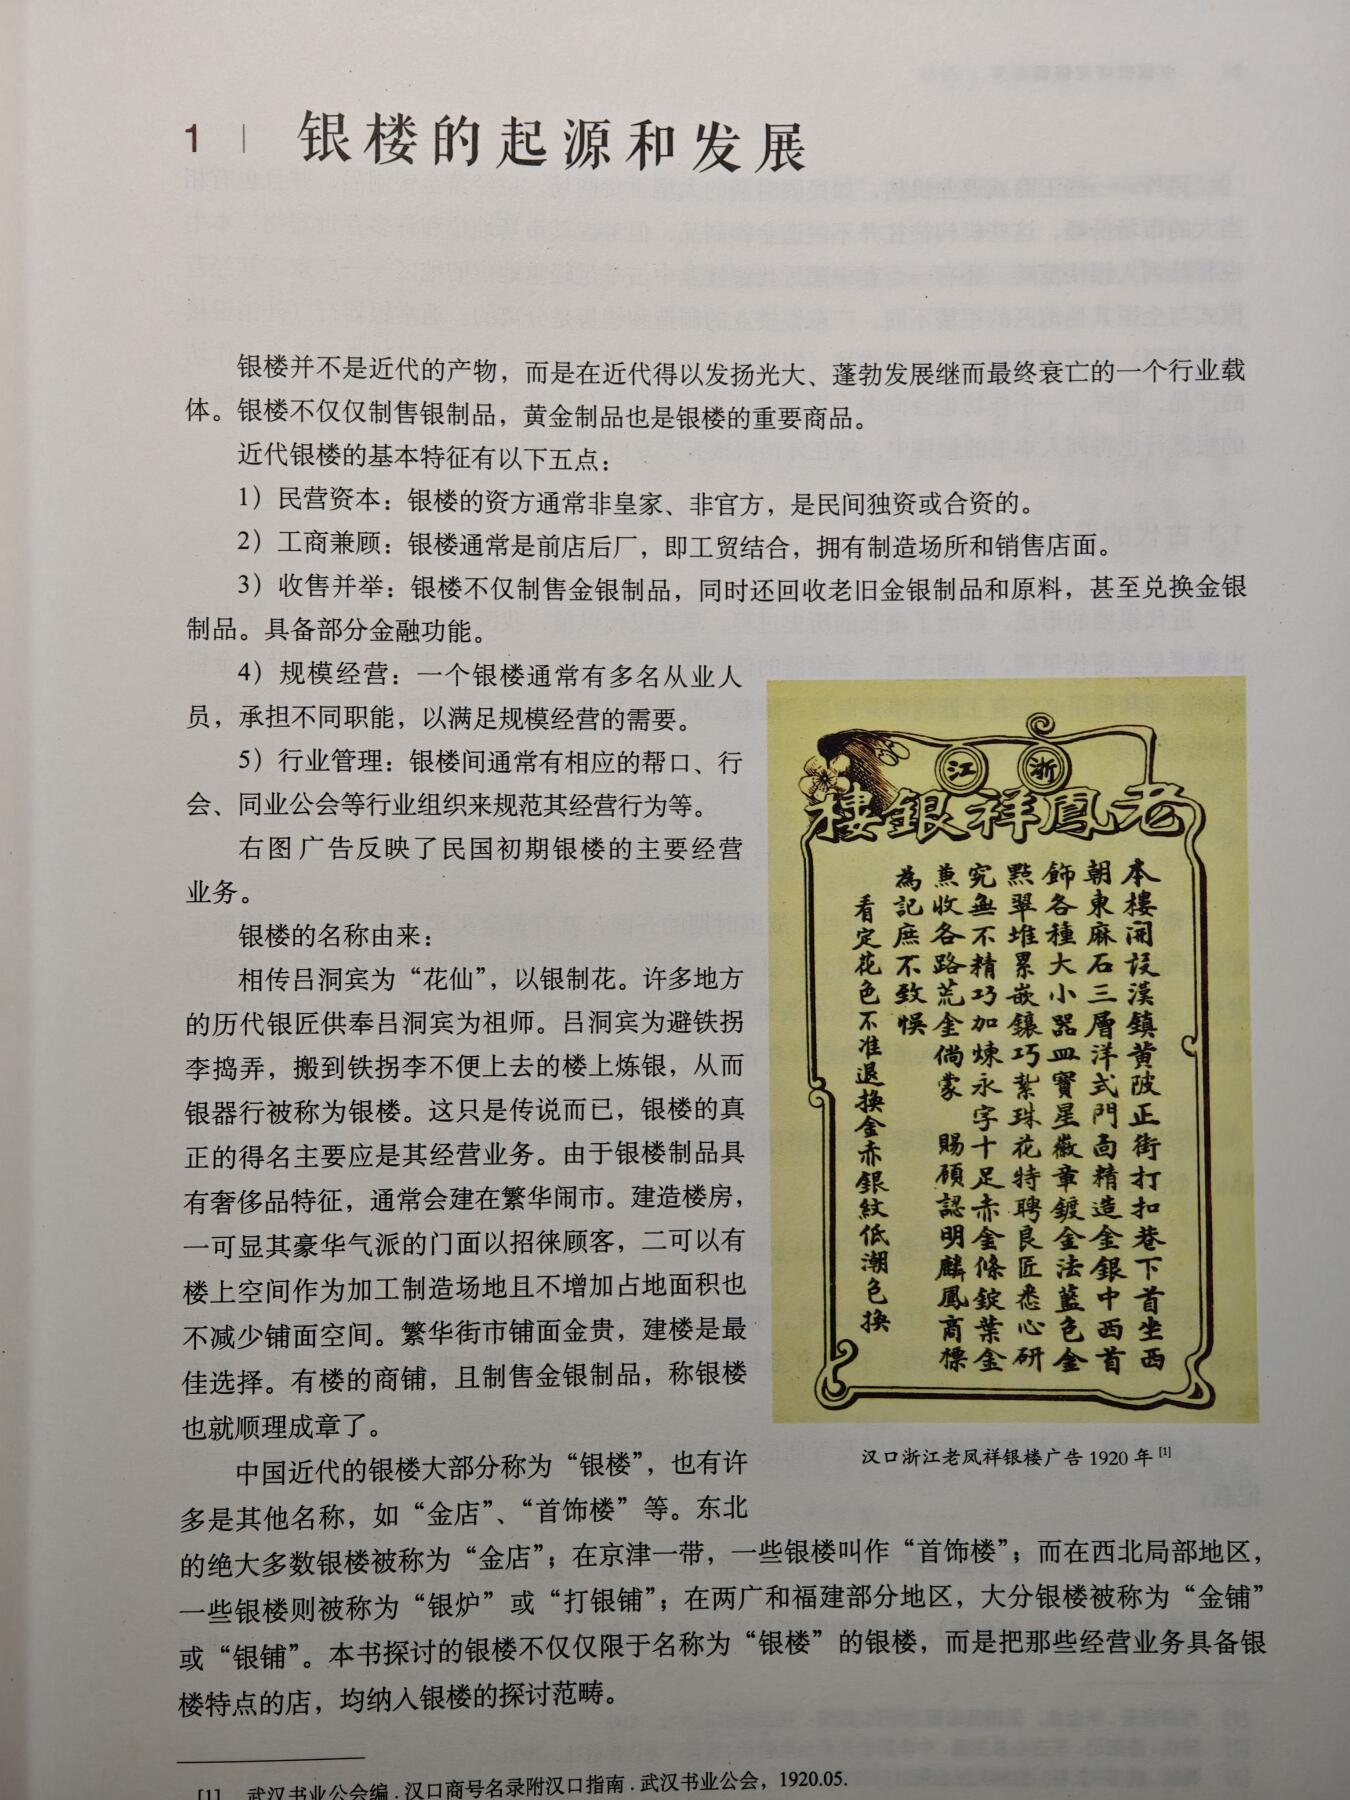 1 | 银楼的起源和发展
银楼并不是近代的产物，而是在近代得以发扬光大、蓬勃发展继而最终衰亡的一个行业载
体。银楼不仅仅制售银制品，黄金制品也是银楼的重要商品。
近代银楼的基本特征有以下五点：
1）民营资本：银楼的资方通常非皇家、非官方，是民间独资或合资的。
2）工商兼顾：银楼通常是前店后厂，即工贸结合，拥有制造场所和销售店面。
3）收售并举：银楼不仅制售金银制品，同时还回收老旧金银制品和原料，甚至兑换金银
制品。具备部分金融功能。
4）规模经营：一个银楼通常有多名从业人
员，承担不同职能，以满足规模经营的需要。
5）行业管理：银楼间通常有相应的帮口、行
会、同业公会等行业组织来规范其经营行为等。
右图广告反映了民国初期银楼的主要经营
业务。
银楼的名称由来：
相传吕洞宾为“花仙”，以银制花。许多地方
的历代银匠供奉吕洞宾为祖师。吕洞宾为避铁拐
李捣弄，搬到铁拐李不便上去的楼上炼银，从而
银器行被称为银楼。这只是传说而已，银楼的真
正的得名主要应是其经营业务。由于银楼制品具
有奢侈品特征，通常会建在繁华闹市。建造楼房，
一可显其豪华气派的门面以招徕顾客，二可以有
楼上空间作为加工制造场地且不增加占地面积也
不减少铺面空间。繁华街市铺面金贵，建楼是最
佳选择。有楼的商铺，且制售金银制品，称银楼
也就顺理成章了。
浙江
老鳳祥銀樓
本樓開設漢鎮黄陂正街打扣巷下首坐西
朝東麻石三層洋式門面精造金銀中西首
飾各種大小器皿寶星徽章鍍金法藍色金
點翠堆累嵌鑲巧紮珠花特聘良匠悉心研
究無不精巧加煉永字十足赤金條錠葉金
兼收各路荒金倘蒙 賜顧認明麟鳳商標
為記庶不致悞
看定花色不准退換金赤銀紋低潮色換
汉口浙江老凤祥银楼广告 1920 年 [1]
中国近代的银楼大部分称为“银楼”，也有许
多是其他名称，如“金店”、“首饰楼”等。东北
的绝大多数银楼被称为“金店”；在京津一带，一些银楼叫作“首饰楼”；而在西北局部地区，
一些银楼则被称为“银炉”或“打银铺”；在两广和福建部分地区，大分银楼被称为“金铺”
或“银铺”。本书探讨的银楼不仅仅限于名称为“银楼”的银楼，而是把那些经营业务具备银
楼特点的店，均纳入银楼的探讨范畴。
[1] 武汉书业公会编 . 汉口商号名录附汉口指南 . 武汉书业公会，1920.05.